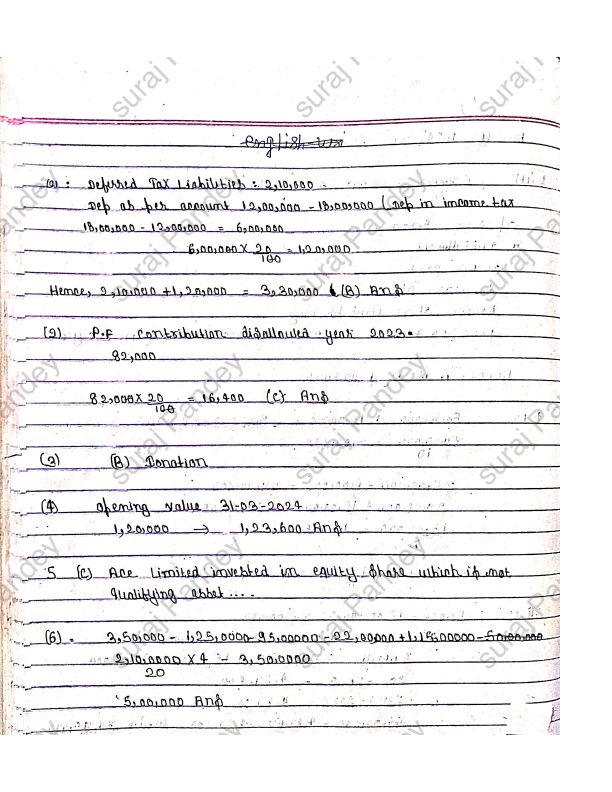 suraj Pandey
suraj Pandey
suraj Pandey
english
(1): Deferred Tax Liabilities : 2,10,000
Dep as per account 12,00,000 - 18,00,000 (Dep in income tax
18,00,000 - 12,00,000 = 6,00,000
6,00,000 X 20/100 = 1,20,000
Hence, 2,10,000 + 1,20,000 = 3,30,000 (B) Ans
(2) P.F contribution disallowed year 2023.
82,000
82,000 X 20/100 = 16,400 (C) Ans
(3) (B) Donation
(4) opening value 31-03-2024
1,20,000 → 1,23,600 Ans
5 (C) Ace Limited invested in equity share which is not
qualifying asset ....
(6). 3,50,000 - 1,25,0000 95,00000 - 22,00000 + 1,15,00000 - 50,00,000
2,10,0000 X 4 - 3,50,0000
20
5,00,000 Ans